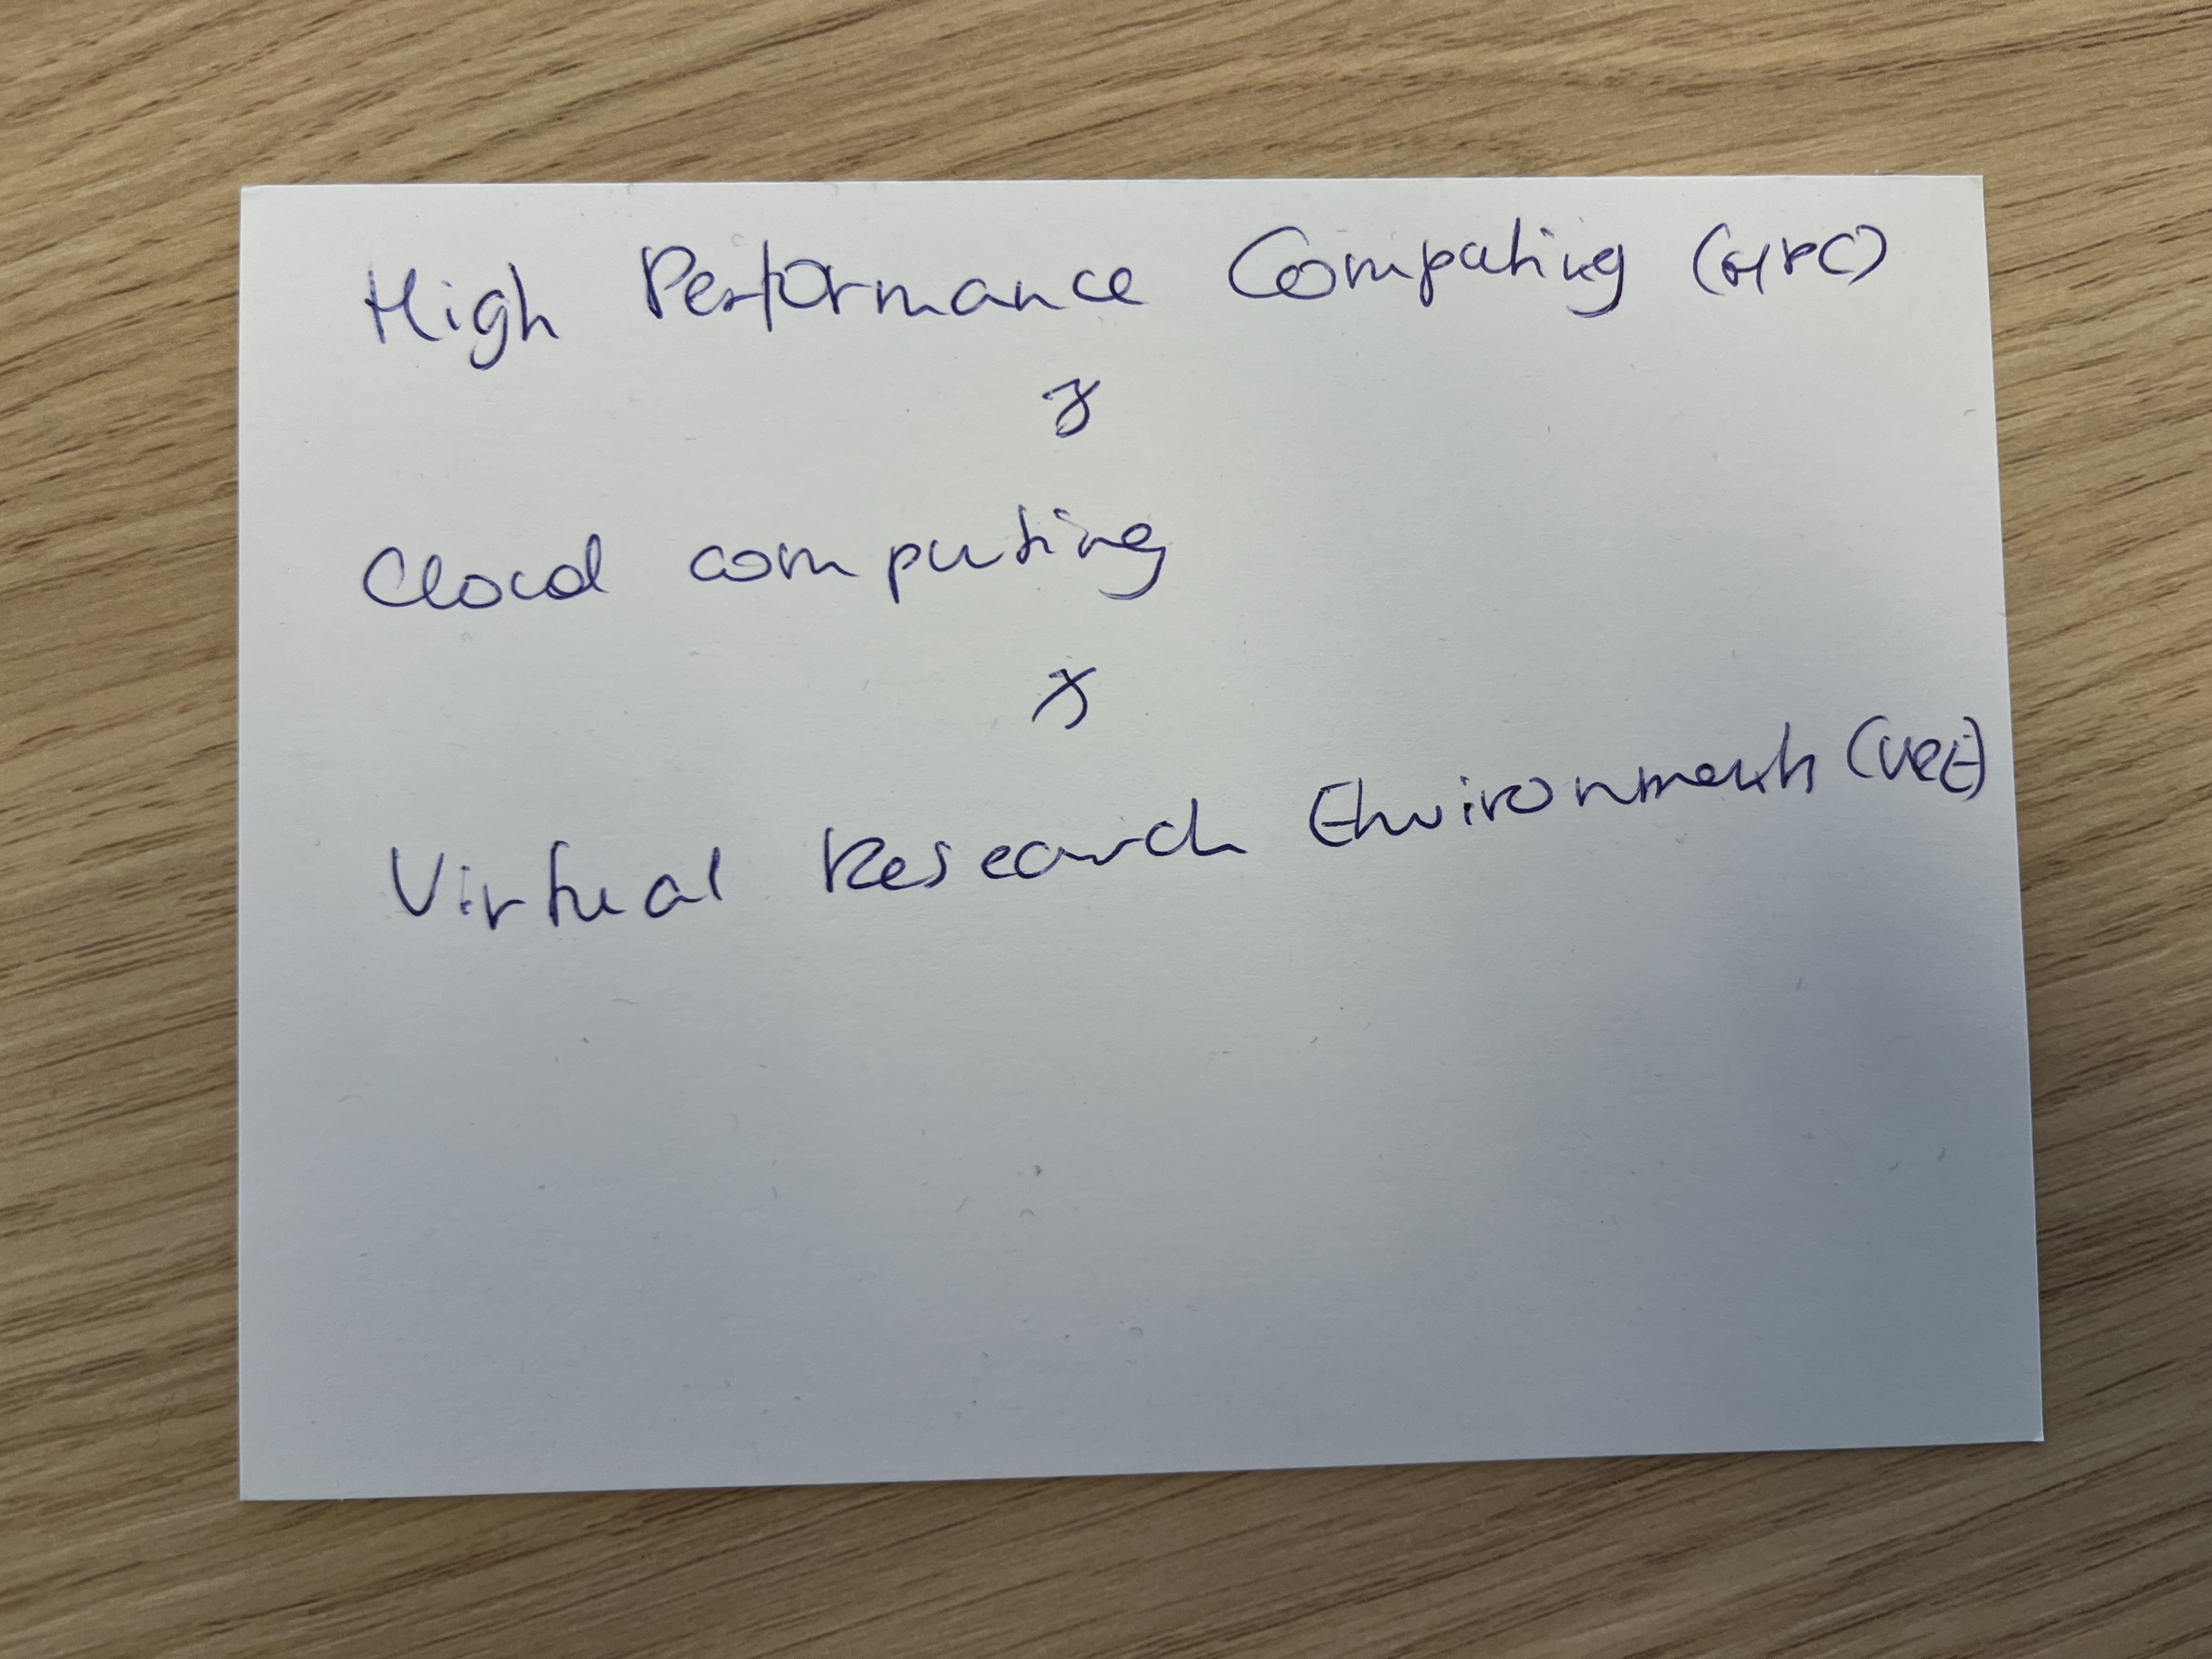 High Performance Computing (HPC)
Cloud computing
Virtual Research Environments (VRE)